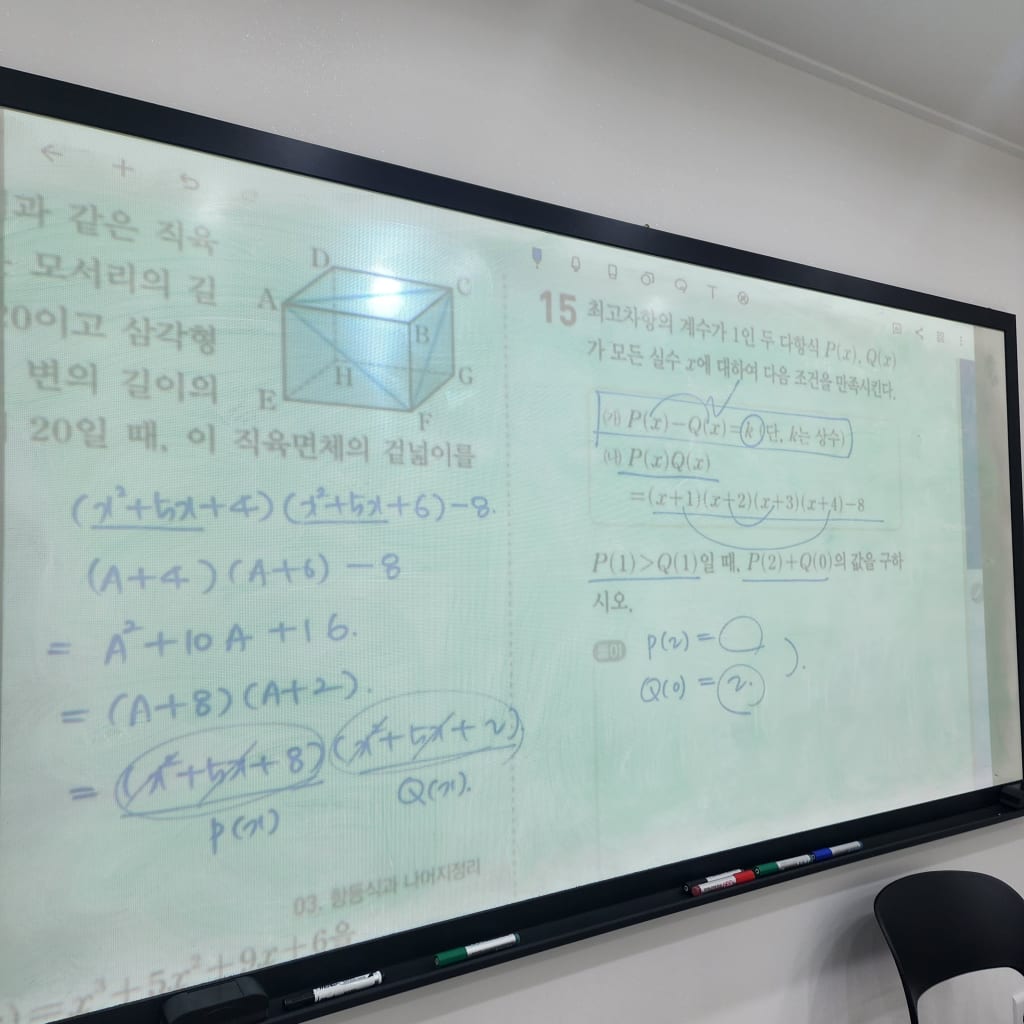 과 같은 직육
모서리의 길
20이고 삼각형
변의 길이의
20일 때, 이 직육면체의 겉넓이를
D
A
C
B
H
G
E
F
(x²+5x+4)(x²+5x+6)-8.
(A+4)(A+6)-8
= A²+10A+16.
= (A+8)(A+2).
= (x²+5x+8)(x²+5x+2)
P(x)
Q(x).
03. 항등식과 나머지정리
=x³+5x²+9x+6을
T
15 최고차항의 계수가 1인 두 다항식 P(x), Q(x)
가 모든 실수 x에 대하여 다음 조건을 만족시킨다.
(가) P(x)-Q(x)=k (단, k는 상수)
(나) P(x)Q(x)
=(x+1)(x+2)(x+3)(x+4)-8
P(1)>Q(1)일 때, P(2)+Q(0)의 값을 구하
시오.
풀이
P(2) =
Q(0) = 2.